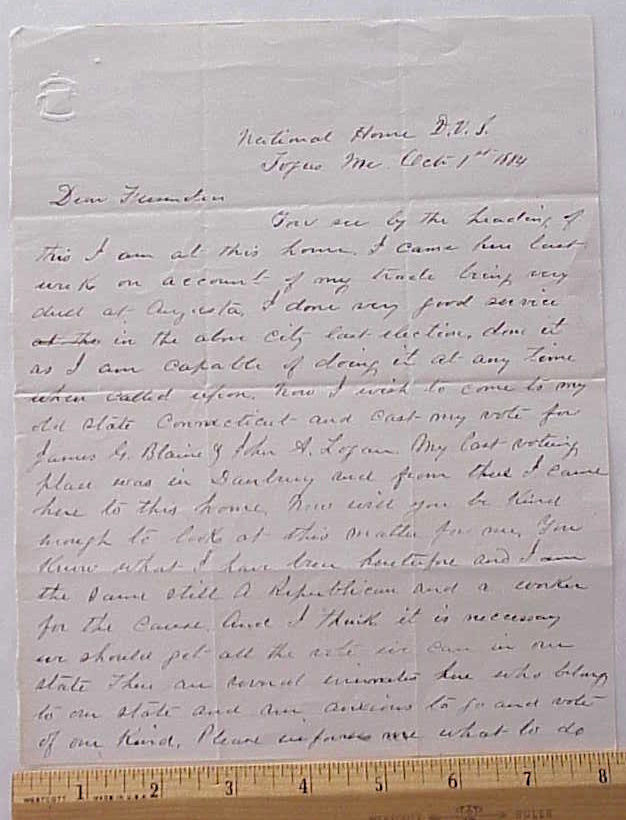 National Home D.V.S.
Togus Me. Oct 1st 1884
Dear
You see by the heading of
this I am at this home. I came here last
week on account of my trade being very
dull at Augusta. I done very good service
at the in the above city last election, done it
as I am capable of doing it at any time
when called upon. Now I wish to come to my
old state Connecticut and cast my vote for
James G. Blaine & John A. Logan. My last voting
place was in Danbury and from there I came
here to this home. Now will you be kind
enough to look at this matter for me. You
know what I have been heretofore and I am
the same still a Republican and a worker
for the cause. And I think it is necessary
we should get all the vote we can in our
state There are several inmates here who belong
to our state and are anxious to go and vote
of our kind. Please inform me what to do
1 2 3 4 5 6 7 8
WESTCOTT
RULER